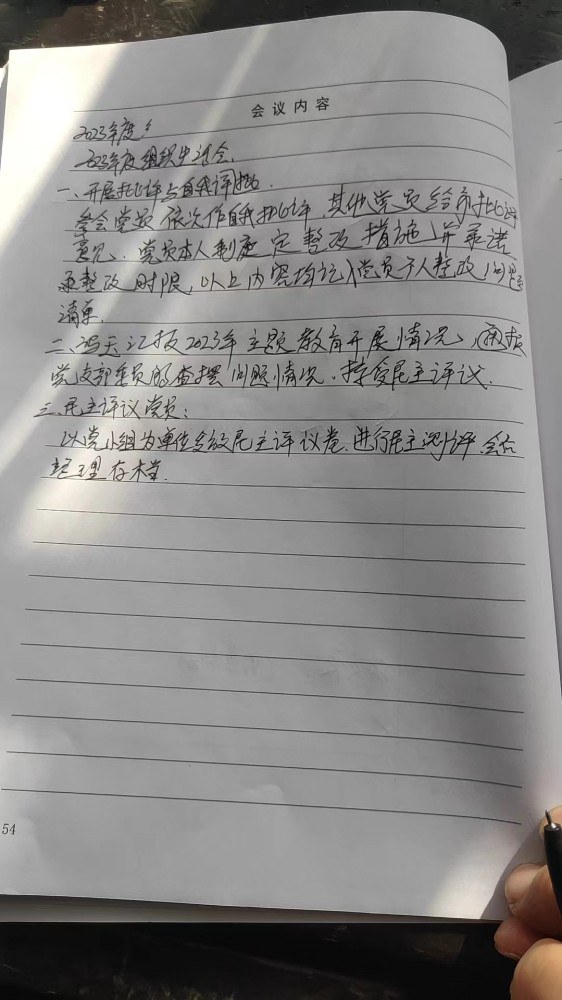 会议内容
2023年度
2023年度组织生活会.
一、开展批评与自我评批.
参会党员依次作自我批评,其他党员给予批评
意见.党员本人制定整改措施,并承诺
整改时限,以上内容均记入党员个人整改问题
清单.
二、冯天汇报2023年主题教育开展情况,通报
党支部委员的查摆问题情况.接受民主评议.
三.民主评议党员:
以党小组为单位发放民主评议卷.进行民主测评.会后
整理存档.
54